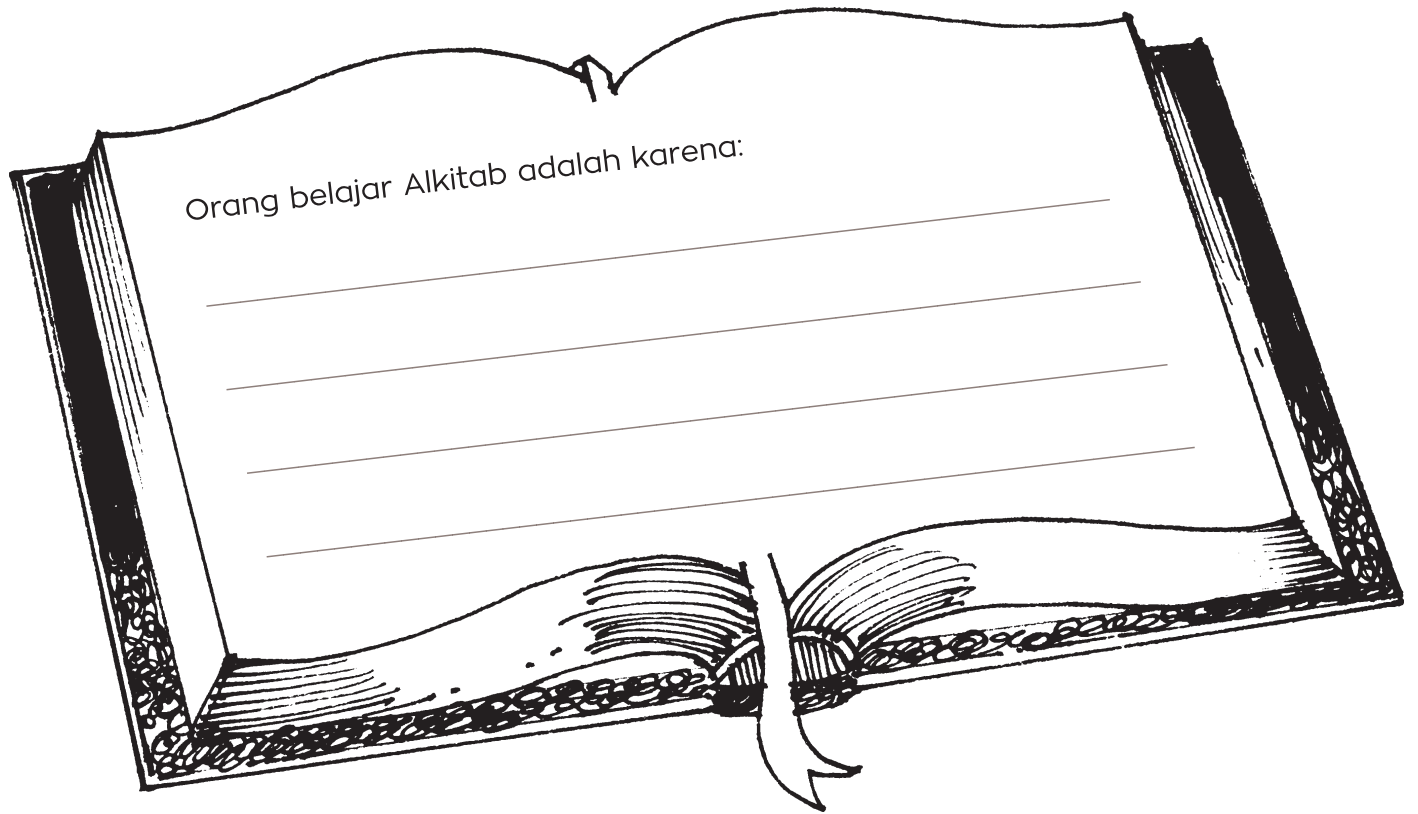 Orang belajar Alkitab adalah karena: